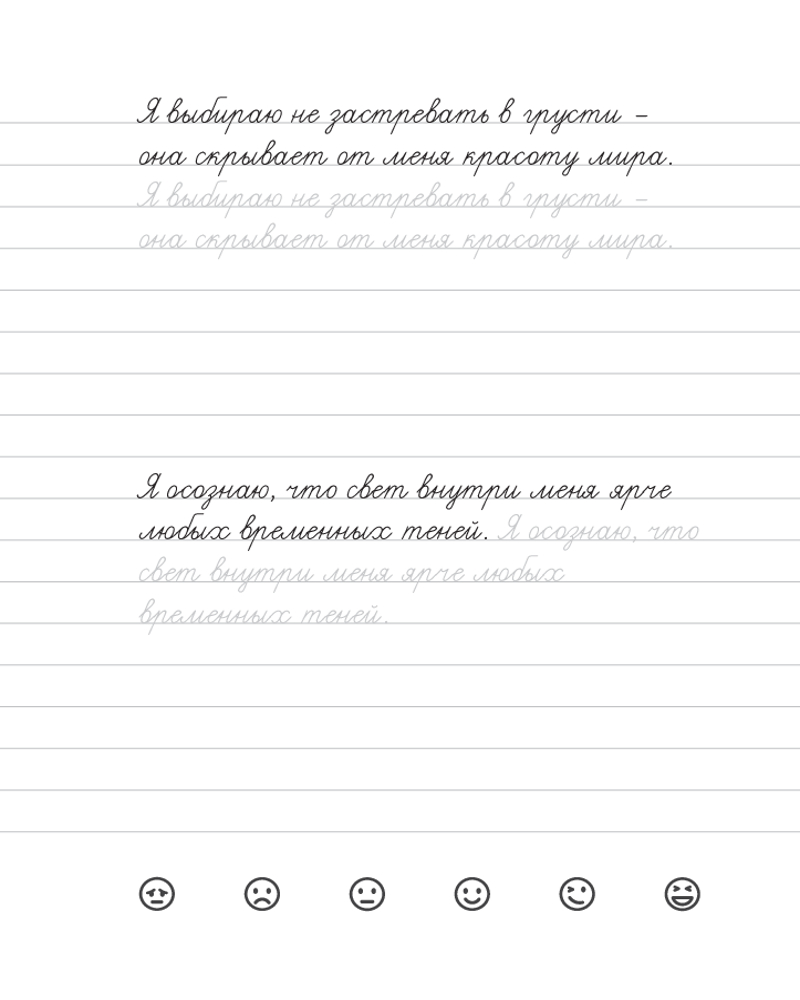 Я выбираю не застревать в грусти –
она скрывает от меня красоту мира.
Я выбираю не застревать в грусти –
она скрывает от меня красоту мира.
Я осознаю, что свет внутри меня ярче
любых временных теней. Я осознаю, что
свет внутри меня ярче любых
временных теней.